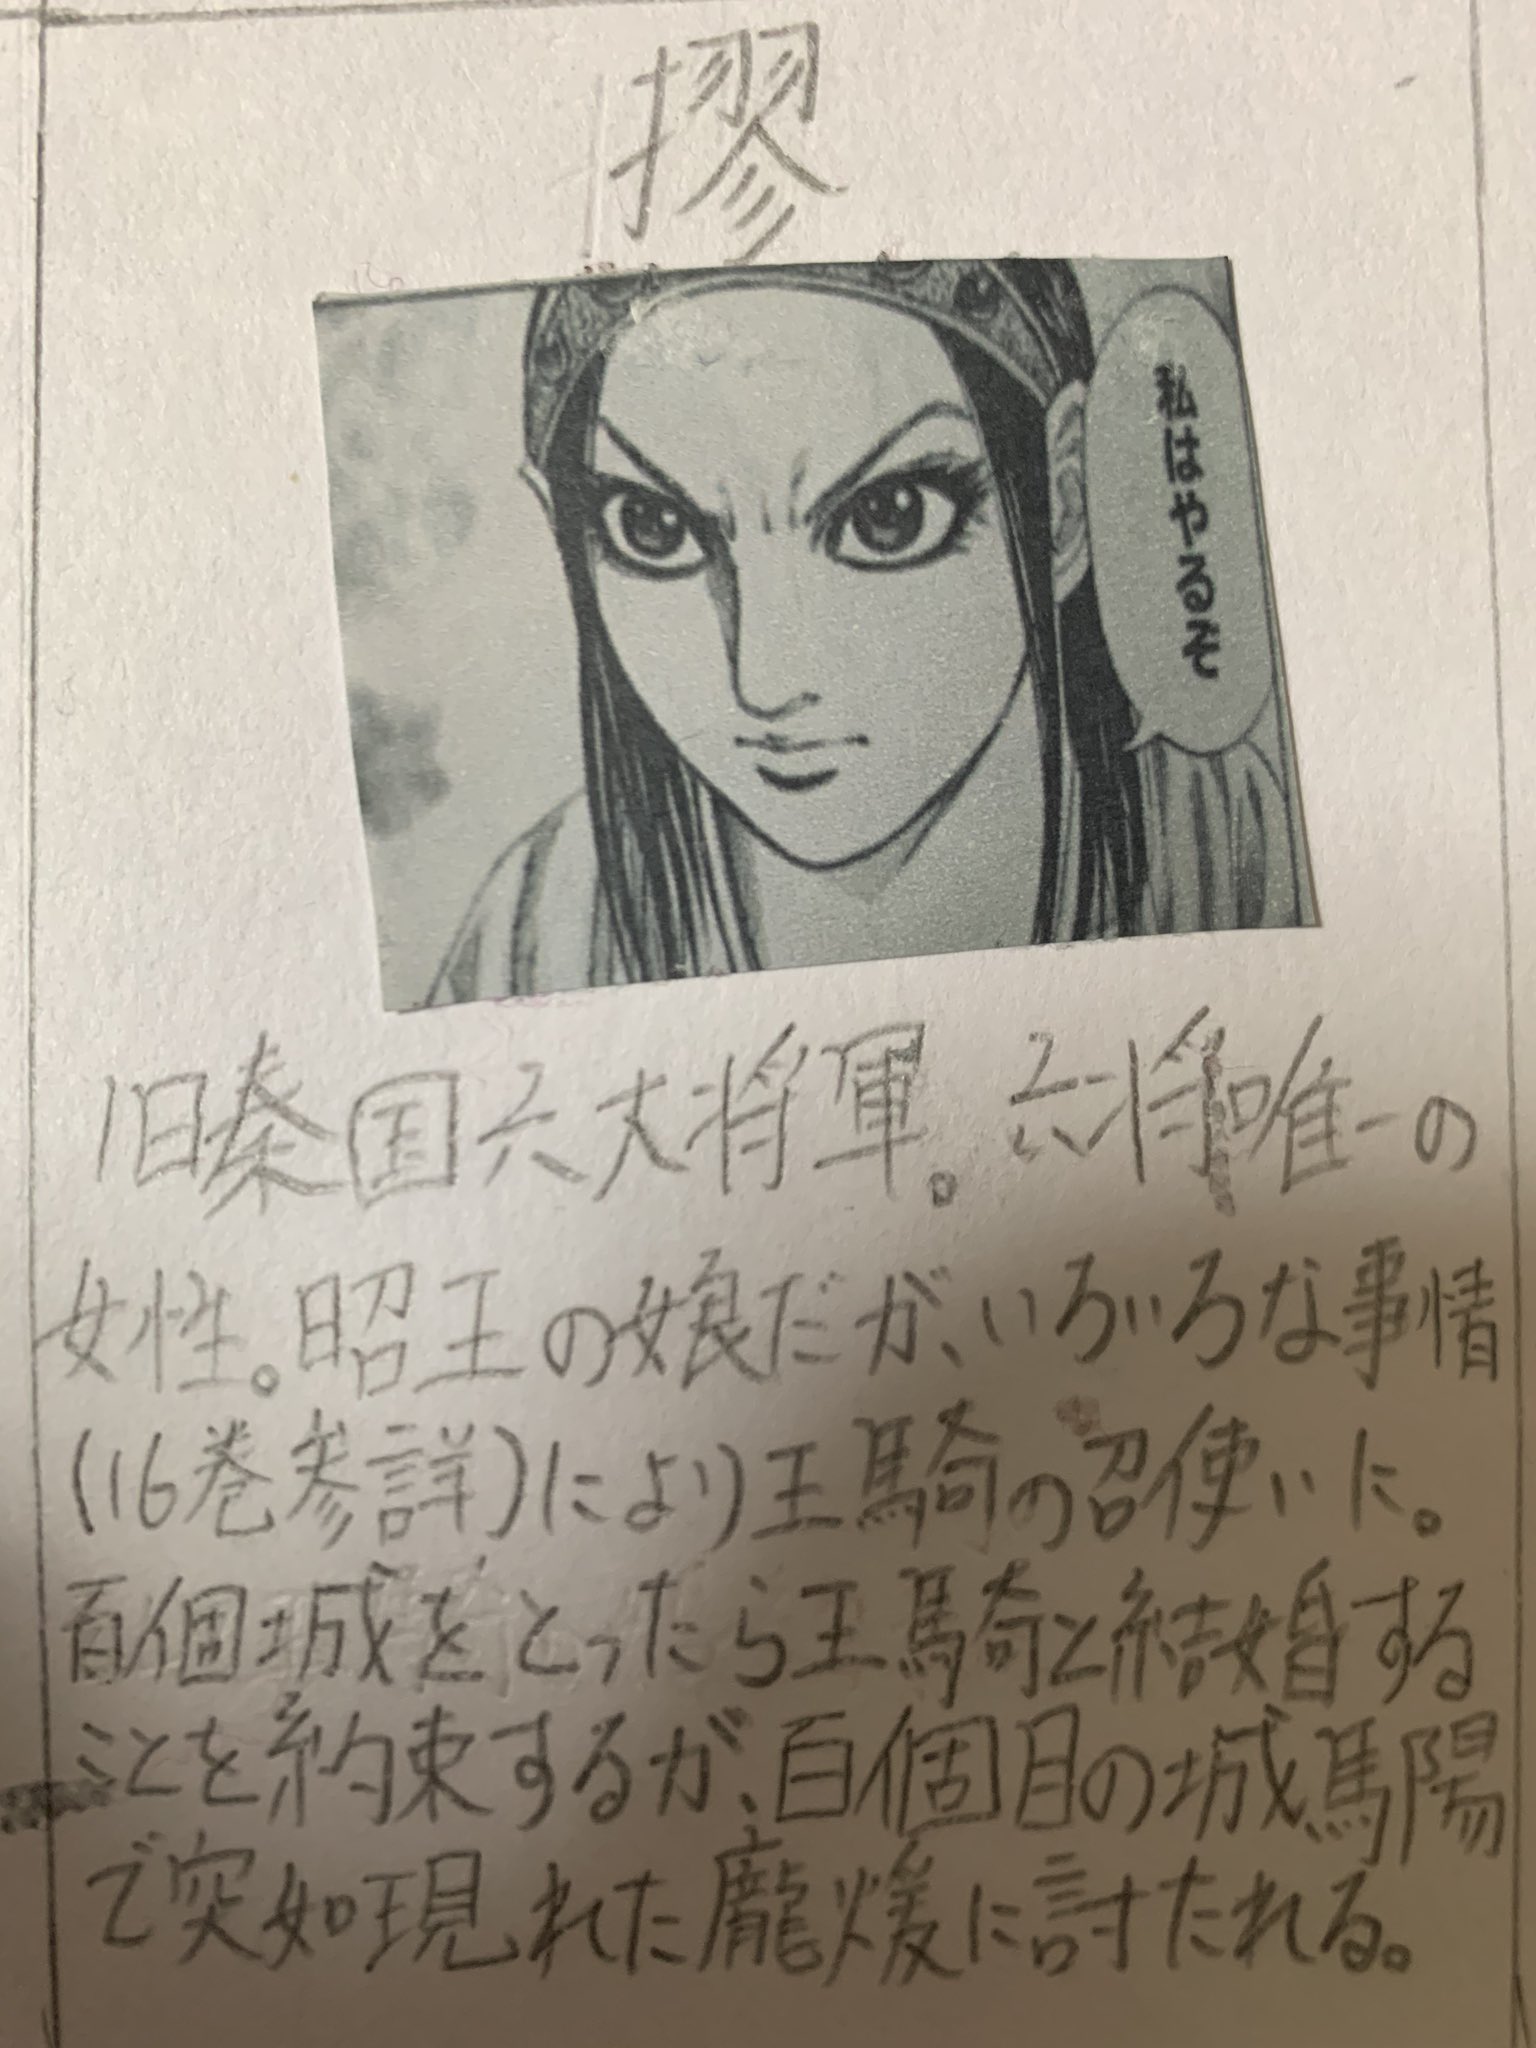 摎
私はやるぞ
旧秦国六大将軍。六将唯一の
女性。昭王の娘だが、いろいろな事情
(16巻参詳)により王騎の召使いに。
百個城をとったら王騎と結婚する
ことを約束するが、百個目の城馬陽
で突如現れた龐煖に討たれる。